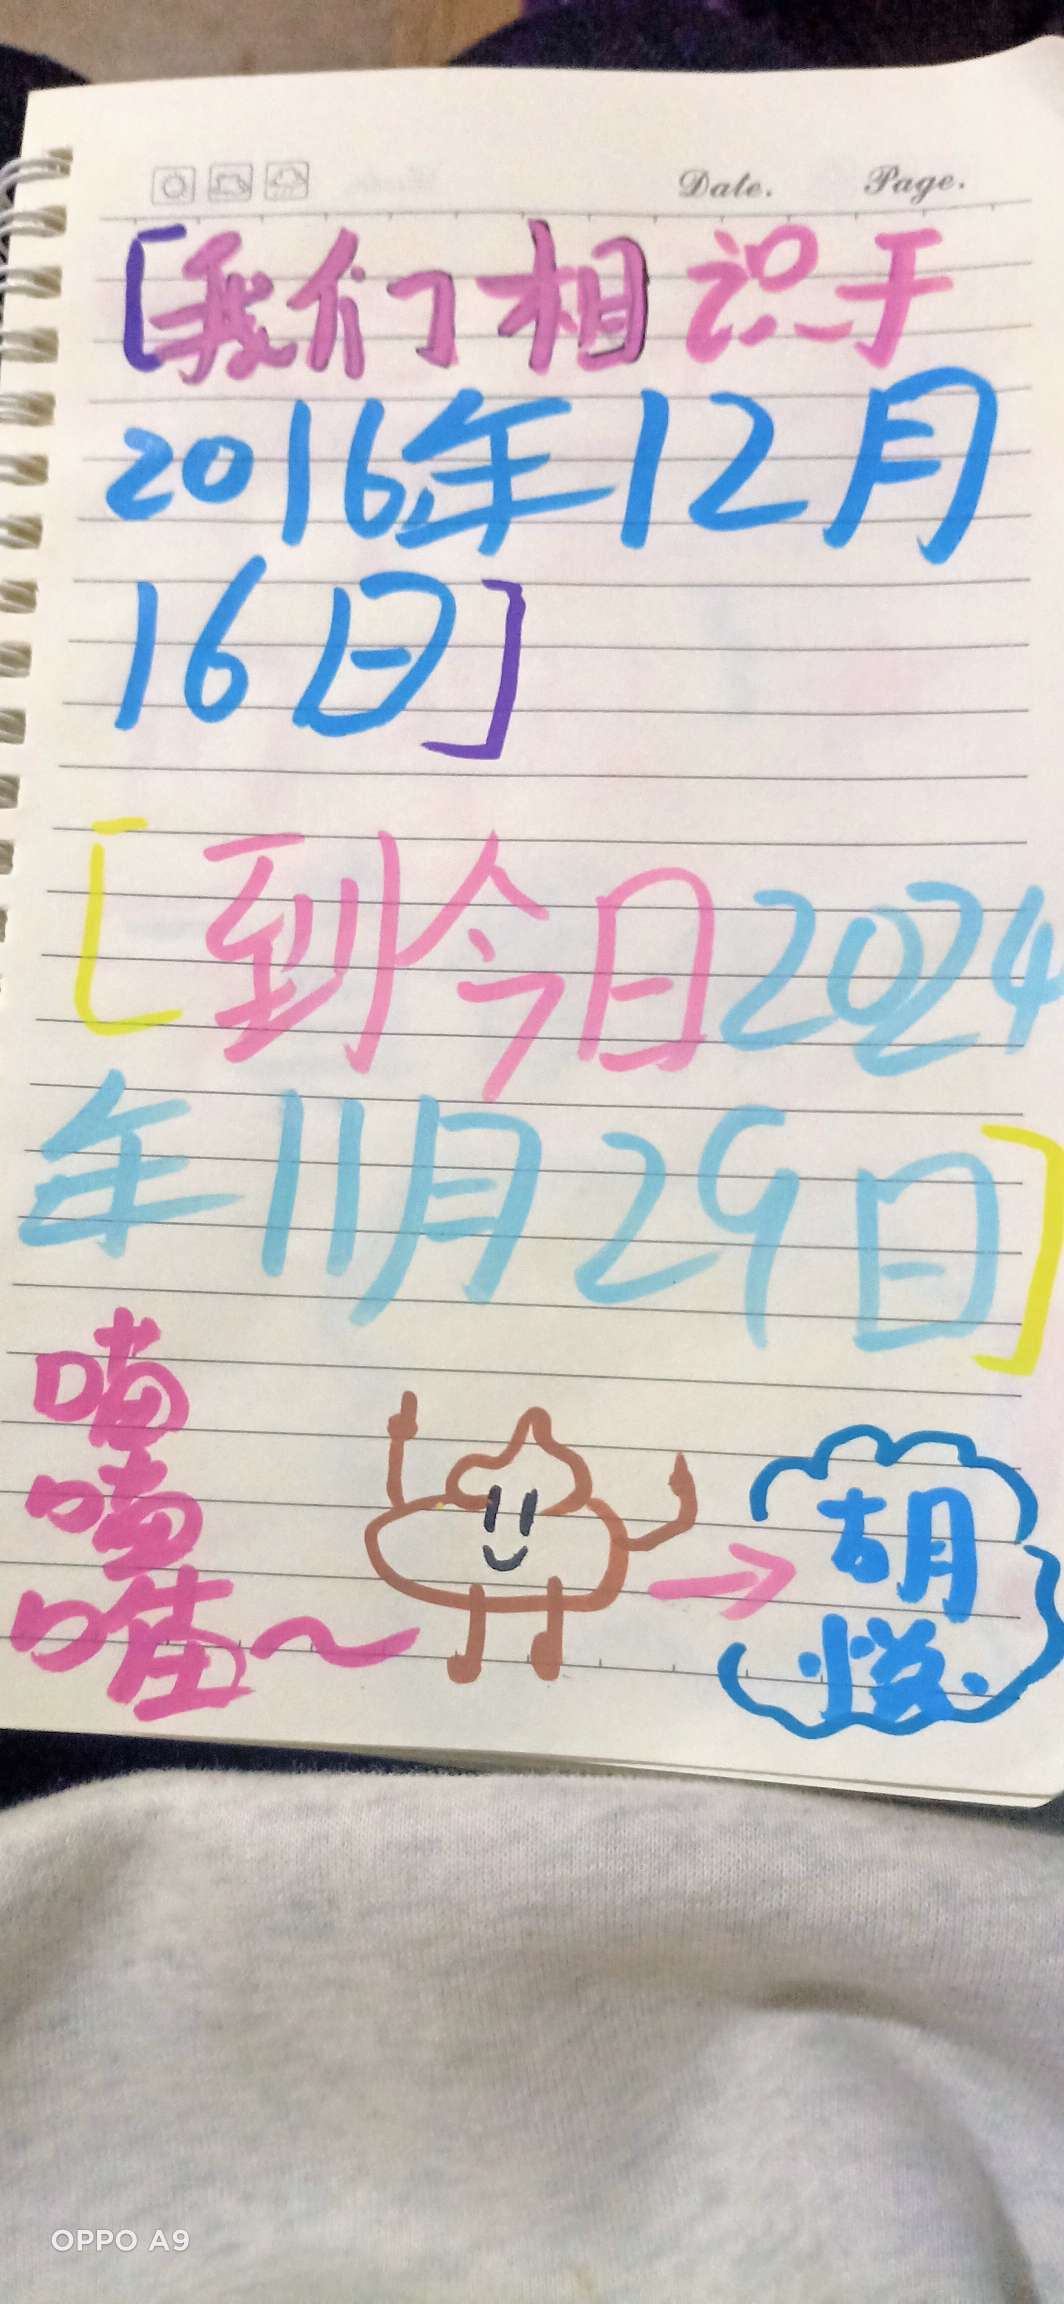 Date. Page.
[我们相识于
2016年12月
16日]
[到今日2024
年11月29日]
喃
喃
哇~
胡
OPPO A9